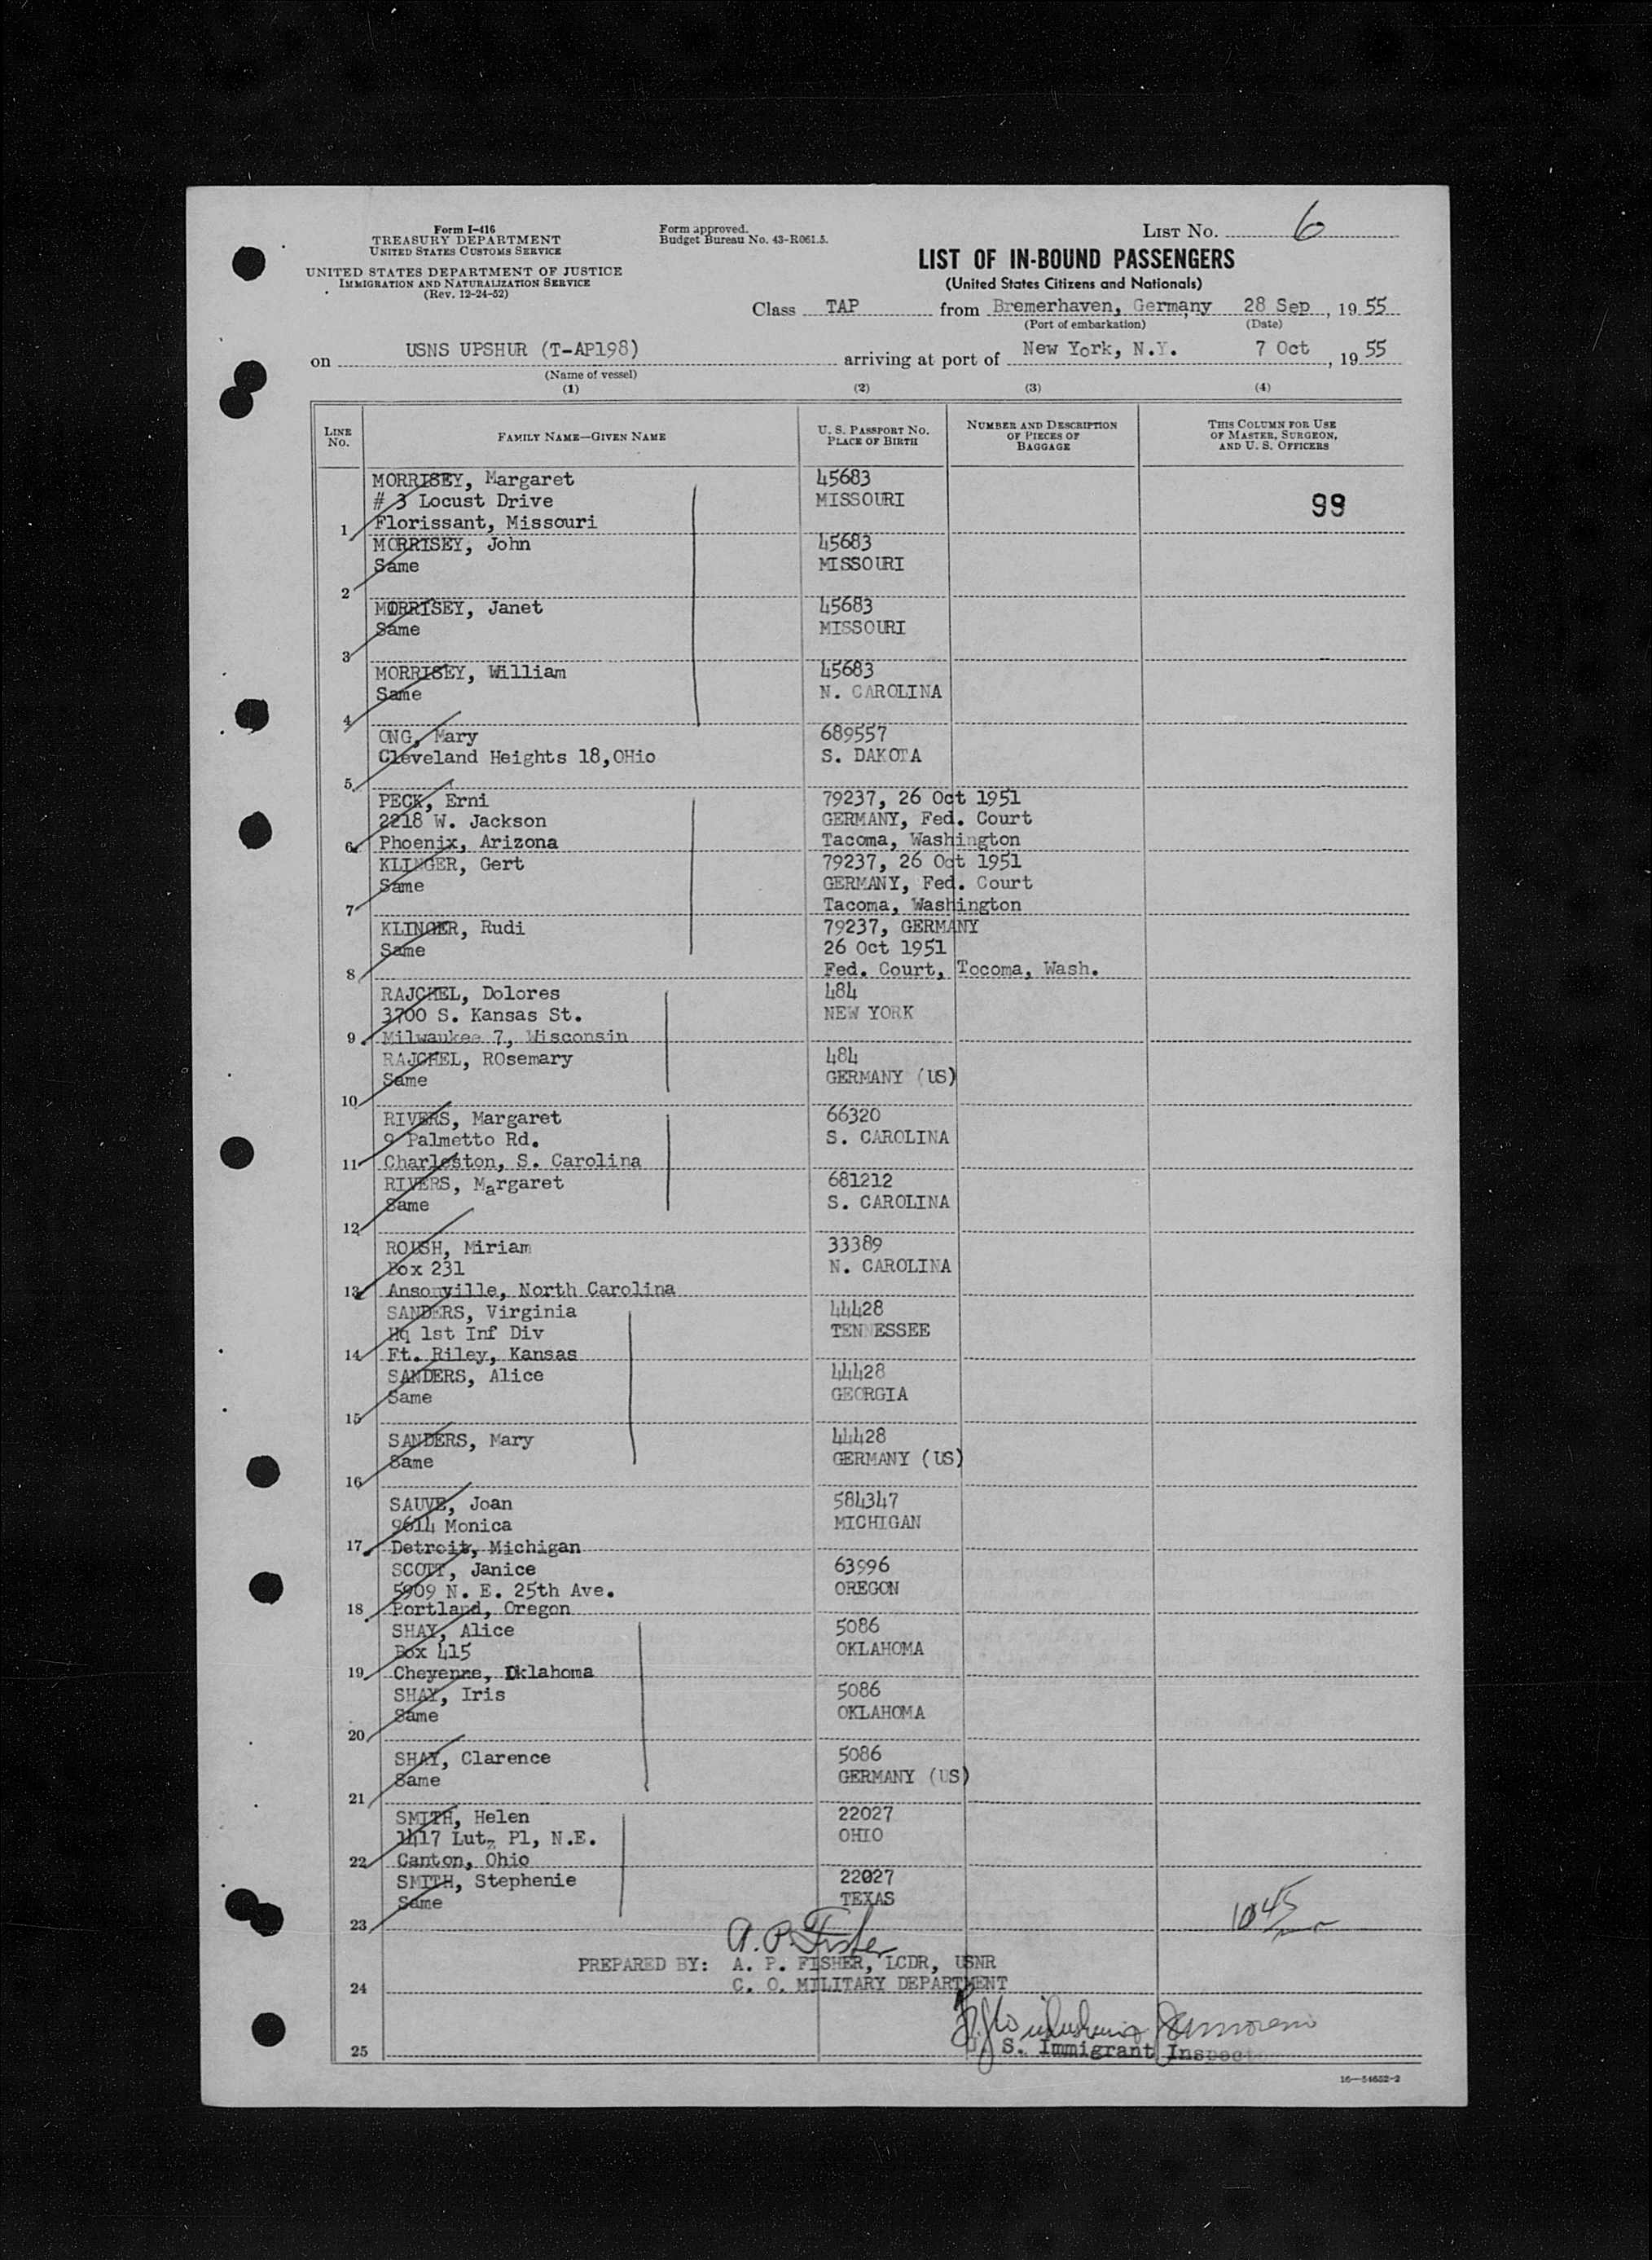 Form I-416
TREASURY DEPARTMENT
UNITED STATES CUSTOMS SERVICE
UNITED STATES DEPARTMENT OF JUSTICE
IMMIGRATION AND NATURALIZATION SERVICE
(Rev. 12-24-52)
Form approved.
Budget Bureau No. 43-R061.5.
LIST NO. 6
LIST OF IN-BOUND PASSENGERS
(United States Citizens and Nationals)
Class TAP from Bremerhaven, Germany 28 Sep, 19 55
(Port of embarkation) (Date)
on USNS UPSHUR (T-AP198) arriving at port of New York, N.Y. 7 Oct, 19 55
(Name of vessel)
(1) (2) (3) (4)
LINE NO.
FAMILY NAME—GIVEN NAME
U. S. PASSPORT NO.
PLACE OF BIRTH
NUMBER AND DESCRIPTION
OF PIECES OF
BAGGAGE
THIS COLUMN FOR USE
OF MASTER, SURGEON,
AND U. S. OFFICERS
MORRISEY, Margaret 45683
# 3 Locust Drive MISSOURI 99
1 Florissant, Missouri
MORRISEY, John 45683
Same MISSOURI
2
MORRISEY, Janet 45683
Same MISSOURI
3
MORRISEY, William 45683
Same N. CAROLINA
4
ONG, Mary 689557
Cleveland Heights 18,OHio S. DAKOTA
5
PECK, Erni 79237, 26 Oct 1951
2218 W. Jackson GERMANY, Fed. Court
6 Phoenix, Arizona Tacoma, Washington
KLINGER, Gert 79237, 26 Oct 1951
Same GERMANY, Fed. Court
7 Tacoma, Washington
KLINGER, Rudi 79237, GERMANY
Same 26 Oct 1951
8 Fed. Court, Tocoma, Wash.
RAJCHEL, Dolores 484
3700 S. Kansas St. NEW YORK
9 Milwaukee 7, Wisconsin
RAJCHEL, ROsemary 484
Same GERMANY (US)
10
RIVERS, Margaret 66320
9 Palmetto Rd. S. CAROLINA
11 Charleston, S. Carolina
RIVERS, Margaret 681212
Same S. CAROLINA
12
ROUSH, Miriam 33389
Box 231 N. CAROLINA
13 Ansonville, North Carolina
SANDERS, Virginia 44428
Hq 1st Inf Div TENNESSEE
14 Ft. Riley, Kansas
SANDERS, Alice 44428
Same GEORGIA
15
SANDERS, Mary 44428
Same GERMANY (US)
16
SAUVE, Joan 584347
9614 Monica MICHIGAN
17 Detroit, Michigan
SCOTT, Janice 63996
5909 N. E. 25th Ave. OREGON
18 Portland, Oregon
SHAY, Alice 5086
Box 415 OKLAHOMA
19 Cheyenne, Oklahoma
SHAY, Iris 5086
Same OKLAHOMA
20
SHAY, Clarence 5086
Same GERMANY (US)
21
SMITH, Helen 22027
1417 Lutz Pl, N.E. OHIO
22 Canton, Ohio
SMITH, Stephenie 22027
Same TEXAS
23
A. P. Fisher
PREPARED BY: A. P. FISHER, LCDR, USNR
24 C. O. MILITARY DEPARTMENT
25 S. Immigrant Inspector
16—54652-2